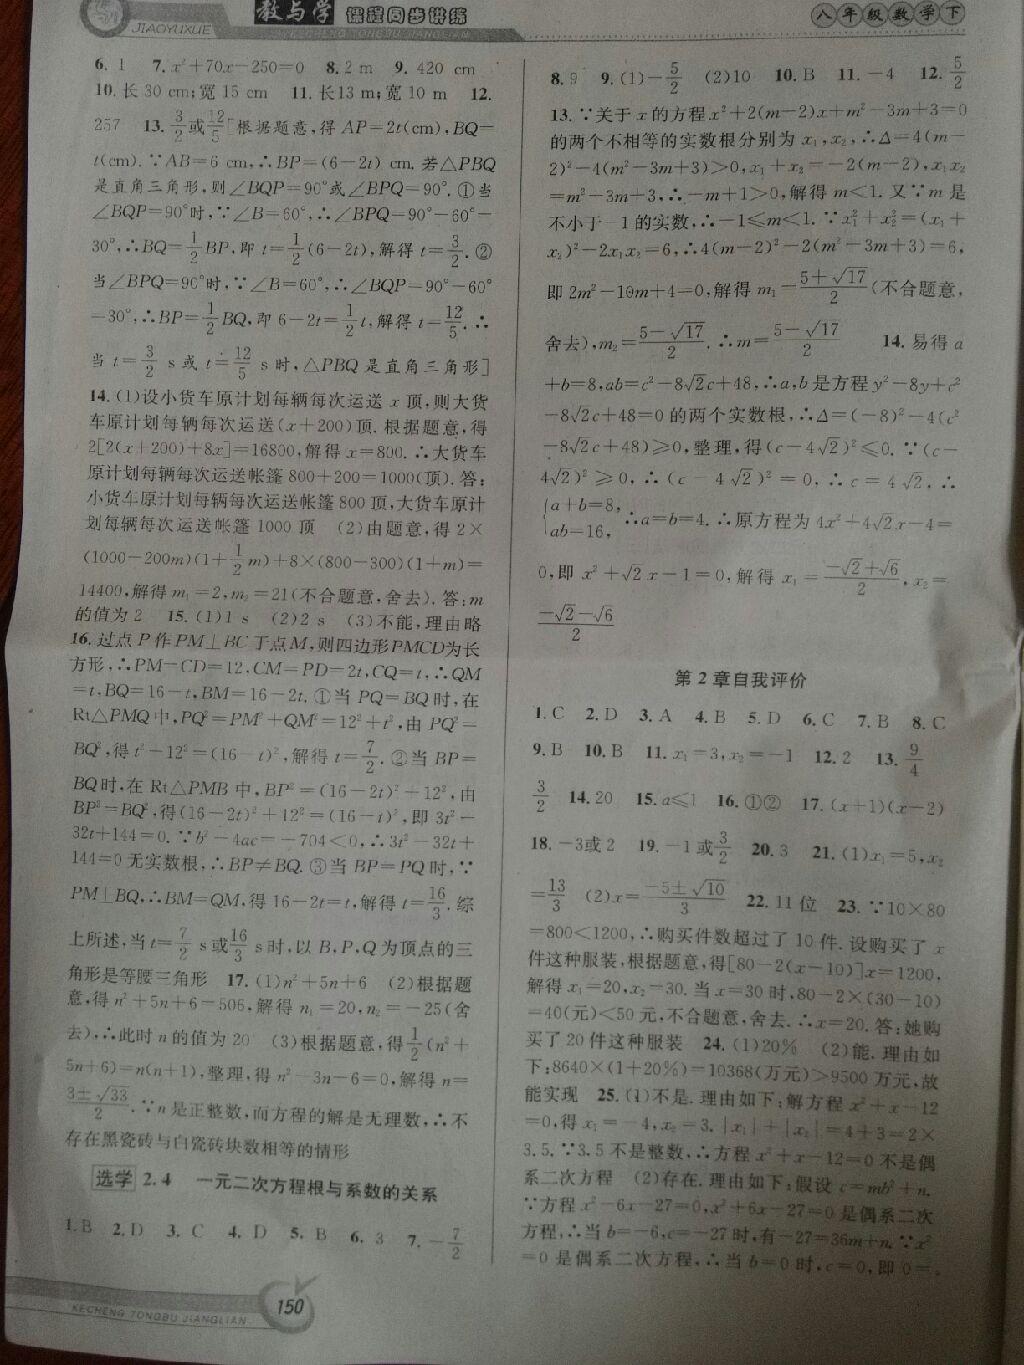 JIAOYUXUE 教与学 课程同步讲练
KECHENG TONGBU JIANGLIAN
八年级数学下
6. 1 7. x²+70x-250=0 8. 2 m 9. 420 cm
10. 长 30 cm;宽 15 cm 11. 长13 m;宽 10 m 12.
257 13. 3/2或12/5[根据题意,得 AP=2t(cm),BQ=
t(cm). ∵AB=6 cm,∴BP=(6-2t) cm. 若△PBQ
是直角三角形,则∠BQP=90°或∠BPQ=90°. ①当
∠BQP=90°时,∵∠B=60°,∴∠BPQ=90°-60°=
30°,∴BQ=1/2BP,即 t=1/2(6-2t),解得 t=3/2. ②
当∠BPQ=90°时,∵∠B=60°,∴∠BQP=90°-60°
=30°,∴BP=1/2BQ,即 6-2t=1/2t,解得 t=12/5. ∴
当 t=3/2 s 或 t=12/5 s 时,△PBQ 是直角三角形]
14. (1)设小货车原计划每辆每次运送 x 顶,则大货
车原计划每辆每次运送(x+200)顶. 根据题意,得
2[2(x+200)+8x]=16800,解得 x=800. ∴大货车
原计划每辆每次运送帐篷 800+200=1000(顶). 答:
小货车原计划每辆每次运送帐篷 800 顶,大货车原计
划每辆每次运送帐篷 1000 顶 (2)由题意,得 2×
(1000-200m)(1+1/2m)+8×(800-300)(1+m)=
14400,解得 m₁=2,m₂=21(不合题意,舍去). 答:m
的值为 2 15. (1)1 s (2)2 s (3)不能,理由略
16. 过点 P 作 PM⊥BC 于点 M,则四边形PMCD为长
方形,∴PM=CD=12,CM=PD=2t,CQ=t,∴QM
=t,BQ=16-t,BM=16-2t. ①当 PQ=BQ 时,在
Rt△PMQ 中,PQ²=PM²+QM²=12²+t²,由 PQ²=
BQ²,得 t²+12²=(16-t)²,解得 t=7/2. ②当 BP=
BQ时,在 Rt△PMB 中,BP²=(16-2t)²+12²,由
BP²=BQ²,得(16-2t)²+12²=(16-t)²,即 3t²-
32t+144=0. ∵b²-4ac=-704<0,∴3t²-32t+
144=0 无实数根,∴BP≠BQ. ③当 BP=PQ 时,∵
PM⊥BQ,∴BM=QM,得 16-2t=t,解得 t=16/3. 综
上所述,当 t=7/2 s或16/3 s时,以 B,P,Q 为顶点的三
角形是等腰三角形 17. (1)n²+5n+6 (2)根据题
意,得 n²+5n+6=506,解得 n₁=20,n₂=-25(舍
去),∴此时 n 的值为 20 (3)根据题意,得1/2(n²+
5n+6)=n(n+1),整理,得 n²-3n-6=0,解得 n=
(3±√33)/2. ∵n 是正整数,而方程的解是无理数,∴不
存在黑瓷砖与白瓷砖块数相等的情形
选学 2.4 一元二次方程根与系数的关系
1. B 2. D 3. C 4. D 5. B 6. 3 7. -7/2
8. 9 9. (1)-5/2 (2)10 10. B 11. -4 12. 5/2
13. ∵关于 x 的方程 x²+2(m-2)x+m²-3m+3=0
的两个不相等的实数根分别为 x₁,x₂,∴Δ=4(m-
2)²-4(m²-3m+3)>0,x₁+x₂=-2(m-2),x₁x₂
=m²-3m+3,∴-m+1>0,解得 m<1. 又∵m 是
不小于-1的实数,∴-1≤m<1. ∵x₁²+x₂²=(x₁+
x₂)²-2x₁x₂=6,∴4(m-2)²-2(m²-3m+3)=6,
即 2m²-10m+4=0,解得 m₁=(5+√17)/2(不合题意,
舍去),m₂=(5-√17)/2. ∴m=(5-√17)/2 14. 易得 a
+b=8,ab=c²-8√2c+48,∴a,b 是方程 y²-8y+c²
-8√2c+48=0 的两个实数根,∴Δ=(-8)²-4(c²
-8√2c+48)≥0,整理,得(c-4√2)²≤0. ∵(c-
4√2)²≥0,∴(c-4√2)²=0,∴c=4√2,∴
{a+b=8, ab=16, ∴a=b=4. ∴原方程为 4x²+4√2x-4=
0,即 x²+√2x-1=0,解得 x₁=(-√2+√6)/2,x₂=
(-√2-√6)/2
第 2 章自我评价
1. C 2. D 3. A 4. B 5. D 6. C 7. B 8. C
9. B 10. B 11. x₁=3,x₂=-1 12. 2 13. 9/4
3/2 14. 20 15. a≤1 16. ①② 17. (x+1)(x-2)
18. -3或2 19. -1或3/2 20. 3 21. (1)x₁=5,x₂
=13/3 (2)x=(-5±√10)/3 22. 11 位 23. ∵10×80
=800<1200,∴购买件数超过了 10 件. 设购买了 x
件这种服装,根据题意,得[80-2(x-10)]x=1200,
解得 x₁=20,x₂=30. 当 x=30 时,80-2×(30-10)
=40(元)<50 元,不合题意,舍去. ∴x=20. 答:她购
买了 20 件这种服装 24. (1)20% (2)能. 理由如
下:8640×(1+20%)=10368(万元)>9500 万元,故
能实现 25. (1)不是. 理由如下:解方程 x²+x-12
=0,得 x₁=-4,x₂=3. |x₁|+|x₂|=4+3=2×
3.5. ∵3.5 不是整数,∴方程 x²+x-12=0 不是偶
系二次方程 (2)存在. 理由如下:假设 c=mb²+n.
∵方程 x²-6x-27=0,x²+6x-27=0 是偶系二次
方程,∴当 b=-6,c=-27 时,有-27=36m+n. ∵x²
=0 是偶系二次方程,∴当 b=0 时,c=0,即 0=
150
KECHENG TONGBU JIANGLIAN